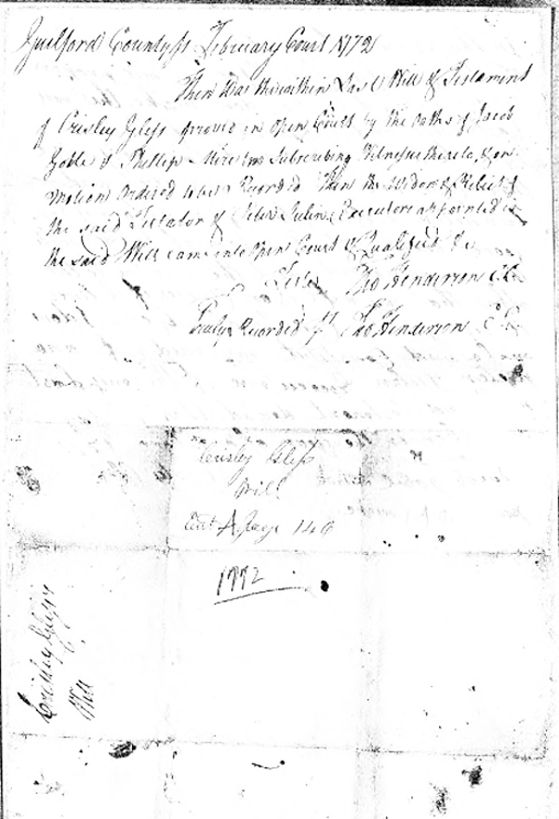 Guilford County ss February Court 1772
Then was the within Last Will & Testament
of Crisley Gless proved in open Court by the oaths of Jacob
& Phillip two Subscribing Witnesses thereto, & on
motion ordered to be Recorded Then the Widow & Relict of
the said Testator & Peter Executors appointed in
the said Will came into Open Court & Qualified &c
Teste Tho Henderson CC
Truly Recorded pr Tho Henderson CC
Crisley Gless
Will
A page 146
1772
Crisley Gless
Will